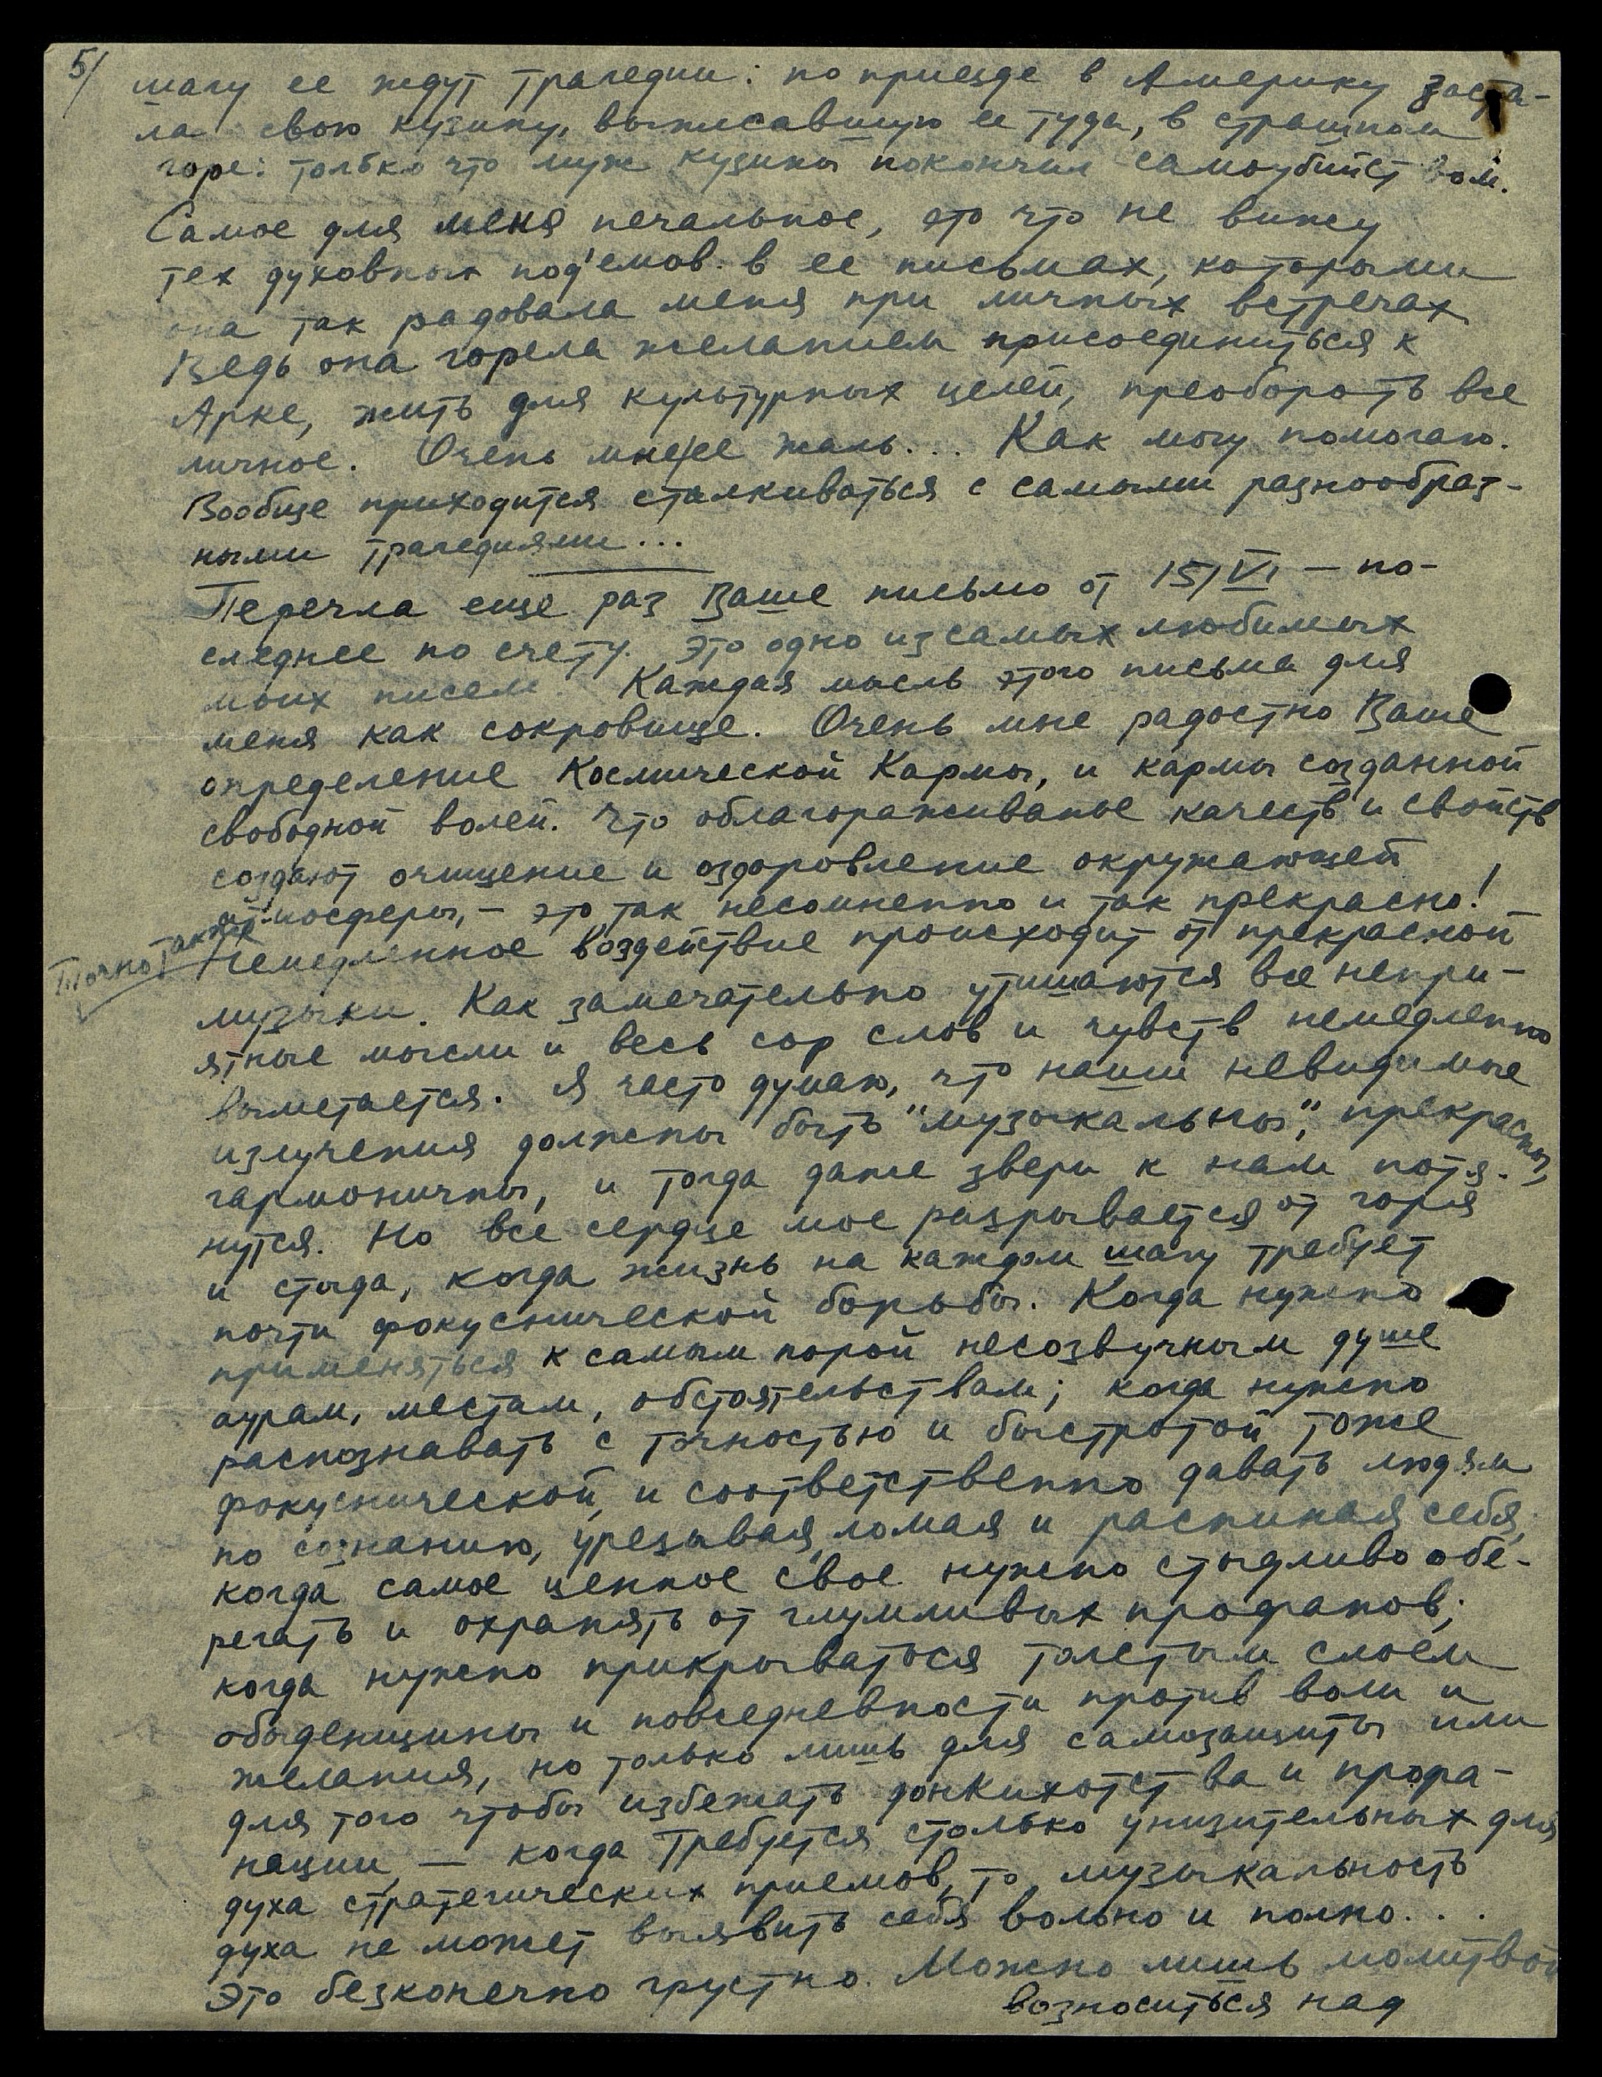 5/
шагу ее ждут трагедии: по приезде в Америку заста-
ла свою кузину, выписавшую ее туда, в страшном
горе: только что муж кузины покончил самоубийством.
Самое для меня печальное, это что не вижу
тех духовных под'емов в ее письмах, которыми
она так радовала меня при личных встречах.
Ведь она горела желанием присоединиться к
Арке, жить для культурных целей, преобороть все
личное. Очень мне ее жаль... Как могу помогаю.
Вообще приходится сталкиваться с самыми разнообраз-
ными трагедиями...
Перечла еще раз Ваше письмо от 15/VI — по-
следнее по счету. Это одно из самых любимых
моих писем. Каждая мысль этого письма для
меня как сокровище. Очень мне радостно Ваше
определение Космической Кармы, и кармы созданной
свободной волей. Что облагораживанье качеств и свойств
создают очищение и оздоровление окружающей
атмосферы, — это так несомненно и так прекрасно!
Точно также
немедленное воздействие происходит от прекрасной
музыки. Как замечательно утишаются все непри-
ятные мысли и весь сор слов и чувств немедленно
выметается. Я часто думаю, что наши невидимые
излучения должны быть "музыкальны", прекрасны,
гармоничны, и тогда даже звери к нам потя-
нутся. Но все сердце мое разрывается от горя
и стыда, когда жизнь на каждом шагу требует
почти фокуснической борьбы. Когда нужно
применяться к самым порой несозвучным душе
аурам, местам, обстоятельствам; когда нужно
распознавать с точностью и быстротой тоже
фокуснической, и соответственно давать людям
по сознанию, урезывая, ломая и распиная себя;
когда самое ценное свое нужно стыдливо обе-
регать и охранять от глумливых профанов;
когда нужно прикрываться толстым слоем
обыденщины и повседневности против воли и
желания, но только лишь для самозащиты или
для того чтобы избежать донкихотства и профа-
нации, — когда требуется столько унизительных для
духа стратегических приемов, то музыкальность
духа не может выявить себя вольно и полно...
Это безконечно грустно. Можно лишь молитвой
возноситься над